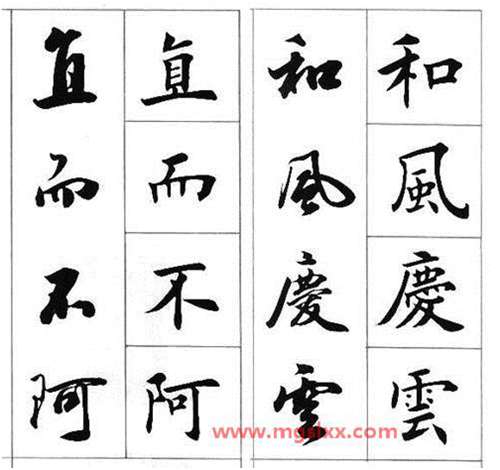 和風慶雲
和風慶雲
直而不阿
直而不阿